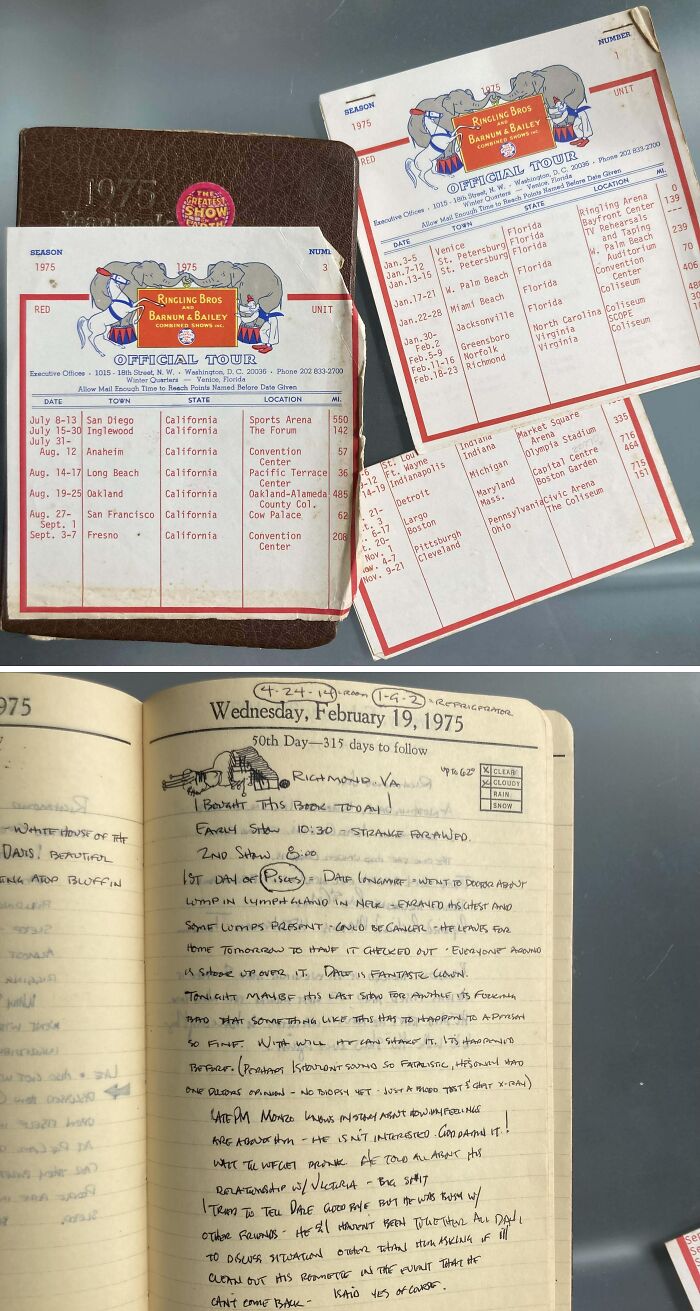 1975
THE
GREATEST
SHOW
EARTH
SEASON
1975
1975
NUM
3
RED
UNIT
RINGLING BROS
AND
BARNUM & BAILEY
COMBINED SHOWS INC.
OFFICIAL TOUR
Executive Offices • 1015 - 18th Street, N. W. • Washington, D. C. 20036 • Phone 202 833-2700
Winter Quarters — Venice, Florida
Allow Mail Enough Time to Reach Points Named Before Date Given
DATE TOWN STATE LOCATION MI.
July 8-13 San Diego California Sports Arena 550
July 15-30 Inglewood California The Forum 142
July 31-
Aug. 12 Anaheim California Convention 57
Center
Aug. 14-17 Long Beach California Pacific Terrace 36
Center
Aug. 19-25 Oakland California Oakland-Alameda 485
County Col.
Aug. 27- San Francisco California Cow Palace 62
Sept. 1
Sept. 3-7 Fresno California Convention 208
Center
SEASON
1975
1975
NUMBER
1
RED
UNIT
RINGLING BROS
AND
BARNUM & BAILEY
COMBINED SHOWS INC.
OFFICIAL TOUR
Executive Offices • 1015 - 18th Street, N. W. • Washington, D. C. 20036 • Phone 202 833-2700
Winter Quarters — Venice, Florida
Allow Mail Enough Time to Reach Points Named Before Date Given
DATE TOWN STATE LOCATION MI.
Jan.3-5 Venice Florida Ringling Arena 0
Jan.7-12 St. Petersburg Florida Bayfront Center 139
Jan.13-15 St. Petersburg Florida TV Rehearsals ---
and Taping
Jan.17-21 W. Palm Beach Florida W. Palm Beach 239
Auditorium
Jan.22-28 Miami Beach Florida Convention 70
Center
Jan.30- Jacksonville Florida Coliseum 406
Feb.2
Feb.5-9 Greensboro North Carolina Coliseum
Feb.11-16 Norfolk Virginia SCOPE
Feb.18-23 Richmond Virginia Coliseum
St. Lou
Ft. Wayne Indiana
14-19 Indianapolis Indiana Market Square 335
Arena
21- Detroit Michigan Olympia Stadium
6-17 Largo Maryland Capital Centre 716
20- Boston Mass. Boston Garden 464
Nov. 1
4-7 Pittsburgh Pennsylvania Civic Arena 715
Nov. 9-21 Cleveland Ohio The Coliseum 151
975
WHITE HOUSE OF THE
DAVIS! BEAUTIFUL
ING ATOP BLUFF IN
4-24-14 = ROOM 1-9-2 = REFRIGERATOR
Wednesday, February 19, 1975
50th Day—315 days to follow
RICHMOND VA
"UP TO 62"
X CLEAR
X CLOUDY
RAIN
SNOW
I BOUGHT THIS BOOK TODAY!
EARLY SHOW 10:30 - STRANGE FOR A WED.
2ND SHOW 8:00
1ST DAY OF PISCES = DALE LONGMIRE - WENT TO DOCTOR ABOUT
LUMP IN LYMPH GLAND IN NECK - EXRAYED HIS CHEST AND
SOME LUMPS PRESENT - COULD BE CANCER - HE LEAVES FOR
HOME TOMORROW TO HAVE IT CHECKED OUT - EVERYONE AROUND
IS SHOOK UP OVER IT. DALE IS FANTASTIC CLOWN.
TONIGHT MAYBE HIS LAST SHOW FOR AWHILE ITS FUCKING
BAD THAT SOMETHING LIKE THIS HAS TO HAPPEN TO A PERSON
SO FINE. WITH WILL HE CAN SHAKE IT. IT'S HAPPENED
BEFORE. (PERHAPS I SHOULDN'T SOUND SO FATALISTIC, HE'S ONLY HAD
ONE DOCTORS OPINION - NO BIOPSY YET - JUST A BLOOD TEST & CHEST X-RAY)
LATE PM MONZO KNOWS ABOUT HOW MY FEELINGS
ARE ABOUT HIM - HE ISN'T INTERESTED. GOD DAMN IT!
WAIT TIL WE GET DRUNK. HE TOLD ALL ABOUT HIS
RELATIONSHIP W/ VICTORIA - BIG SHIT
I TRIED TO TELL DALE GOODBYE BUT HE WAS BUSY W/
OTHER FRIENDS - HE & I HAVEN'T BEEN TOGETHER ALL DAY
TO DISCUSS SITUATION OTHER THAN HIM ASKING IF I'LL
CLEAN OUT HIS ROOMETTE IN THE EVENT THAT HE
CAN'T COME BACK - I SAID YES OF COURSE.